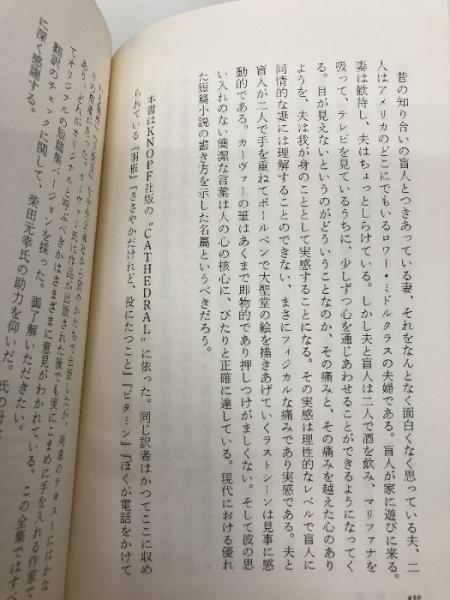 昔の知り合いの盲人とつきあっている妻、それをなんとなく面白くなく思っている夫、二
人はアメリカのどこにでもいるロワー・ミドルクラスの夫婦である。盲人が家に遊びに来る。
妻は歓待し、夫はちょっとしらけている。しかし夫と盲人は二人で酒を飲み、マリファナを
吸って、テレビを見ているうちに、少しずつ心を通じあわせることができるようになってく
る。目が見えないというのがどういうことなのか、その痛みと、その痛みを越えた心のあり
ようを、夫は我が身のこととして実感することになる。その実感は理性的なレベルで盲人に
同情的な妻には理解することのできない、まさにフィジカルな痛みであり実感である。夫と
盲人が二人で手を重ねてボールペンで大聖堂の絵を描きあげていくラストシーンは見事に感
動的である。カーヴァーの筆はあくまで即物的であり押しつけがましくない。そして彼の思
い入れのない簡潔な言葉は人の心の核心に、ぴたりと正確に達している。現代における優れ
た短篇小説の書き方を示した名篇というべきだろう。
本書はKNOPF社版の"CATHEDRAL"に依った。同じ訳者はかつてここに収め
られている『羽根』『ささやかだけれど、役にたつこと』『ビタミン』『ぼくが電話をかけて
カーヴァー氏は作品が出版された後でも実にこまめに手を入れる作家で
あり、どれがオリジナルと呼ぶべきかはさまざまに意見がわかれている。この全集ではすべ
てオリジナルの短篇集バージョンを採った。御了解いただきたい。
翻訳のチェックに関して、柴田元幸氏の助力を仰いだ。
に深く感謝する。